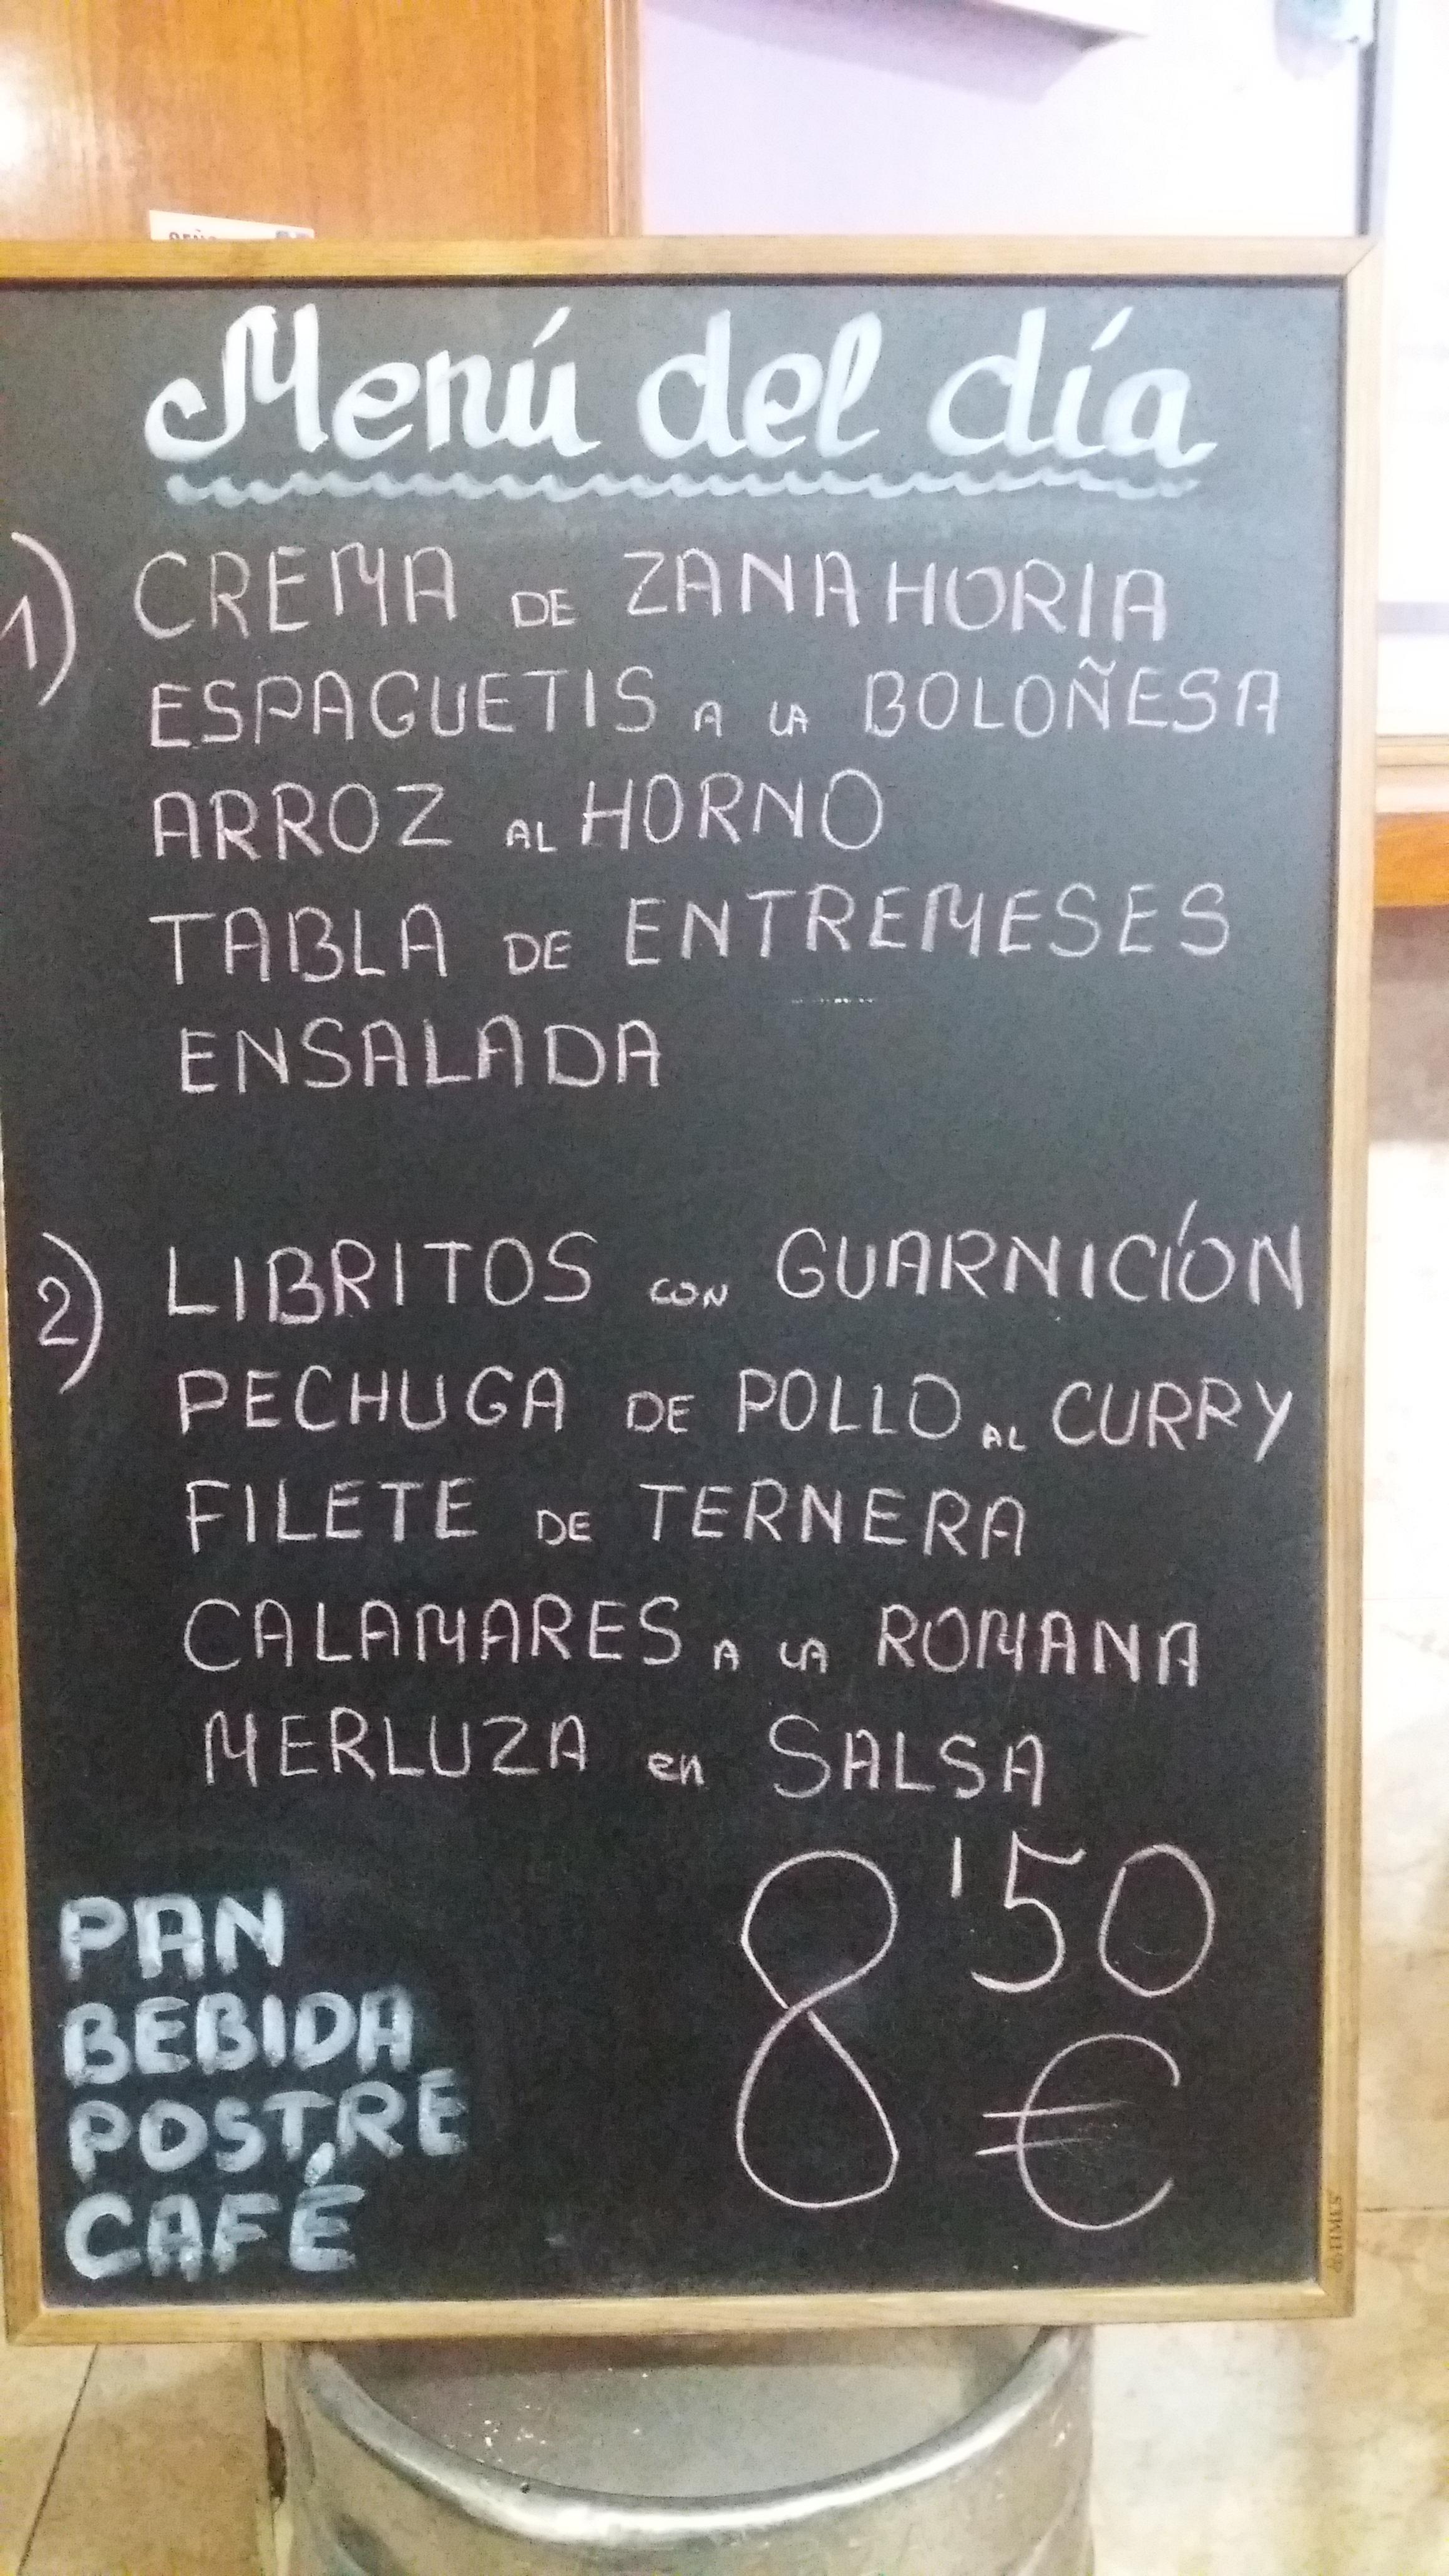 Menú del día
1) CREMA DE ZANAHORIA
ESPAGUETIS A LA BOLOÑESA
ARROZ AL HORNO
TABLA DE ENTREMESES
ENSALADA
2) LIBRITOS CON GUARNICÍON
PECHUGA DE POLLO AL CURRY
FILETE DE TERNERA
CALAMARES A LA ROMANA
MERLUZA en SALSA
8'50
€
PAN
BEBIDA
POSTRE
CAFÉ